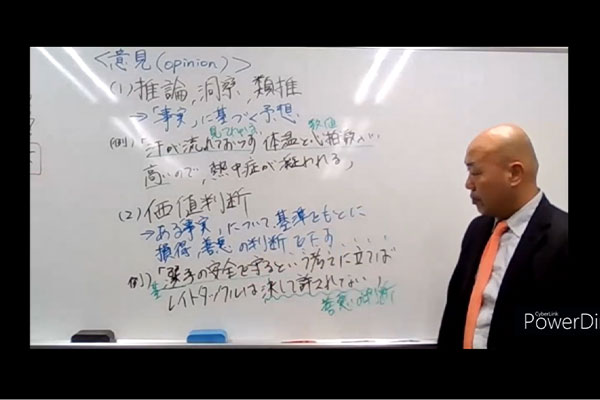 <意見(opinion)>
(1)推論,洞察,類推
→「事実」に基づく予想
見てわかる 数値
(例)「汗が流れており 体温と心拍数が
高いので,熱中症が疑われる」
(2)価値判断
→ある事実,について,基準をもとに
損得,善悪の判断を下す
例)「選手の安全を守るという考えに立てば
レイトタックルは決して許されない」
善悪の判断
CyberLink
PowerDi